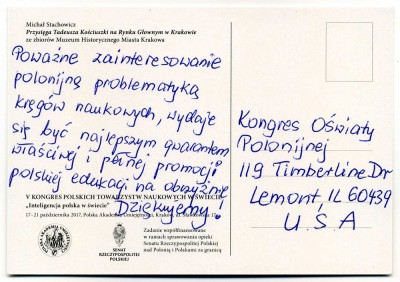 Michał Stachowicz
Przysięga Tadeusza Kościuszki na Rynku Głównym w Krakowie
ze zbiorów Muzeum Historycznego Miasta Krakowa
Poważne zainteresowanie
polonijną problematyką
kręgów naukowych, wydaje
się być najlepszym gwarantem
właściwej i pełnej promocji
polskiej edukacji na obczyźnie
Dziękujemy!
V KONGRES POLSKICH TOWARZYSTW NAUKOWYCH W ŚWIECIE
„Inteligencja polska w świecie”
17-21 października 2017, Polska Akademia Umiejętności, Kraków, ul. Sławkowska 17
SENAT
RZECZYPOSPOLITEJ
POLSKIEJ
Zadanie współfinansowane
w ramach sprawowania opieki
Senatu Rzeczypospolitej Polskiej
nad Polonią i Polakami za granicą
Kongres Oświaty
Polonijnej
119 Timberline Dr
Lemont, IL 60439
U.S.A